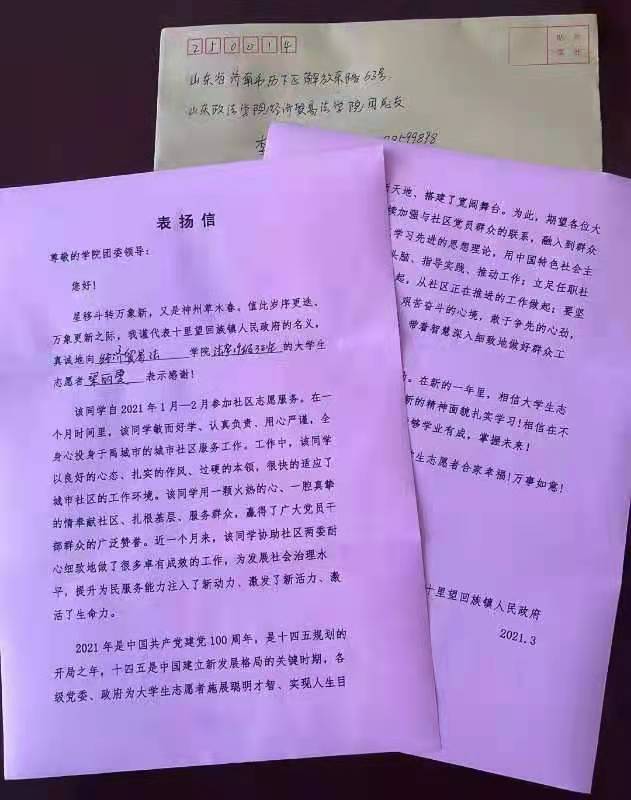 250014
贴 邮
票 处
山东省济南市历下区解放东路63号
山东政法学院经济贸易法学院团总支
李
599898
表扬信
尊敬的学院团委领导：
您好！
星移斗转万象新，又是神州草木春。值此岁序更迭、
万象更新之际，我谨代表十里望回族镇人民政府的名义，
真诚地向 经济贸易法 学院 的大学生
志愿者 梁丽雯 表示感谢！
该同学自2021年1月—2月参加社区志愿服务。在一
个月时间里，该同学敏而好学、认真负责、用心严谨，全
身心投身于禹城市的城市社区服务工作。工作中，该同学
以良好的心态、扎实的作风、过硬的本领，很快的适应了
城市社区的工作环境。该同学用一颗火热的心、一腔真挚
的情奉献社区、扎根基层、服务群众，赢得了广大党员干
部群众的广泛赞誉。近一个月来，该同学协助社区两委耐
心细致地做了很多卓有成效的工作，为发展社会治理水
平，提升为民服务能力注入了新动力、激发了新活力、激
活了生命力。
2021年是中国共产党建党100周年，是十四五规划的
开局之年，十四五是中国建立新发展格局的关键时期，各
级党委、政府为大学生志愿者施展聪明才智、实现人生目
天地、搭建了宽阔舞台。为此，期望各位大
续加强与社区党员群众的联系，融入到群众
学习先进的思想理论，用中国特色社会主
头脑、指导实践、推动工作；立足任职社
起，从社区正在推进的工作做起；要坚
艰苦奋斗的心境，敢于争先的心劲，
带着智慧深入细致地做好群众工
。在新的一年里，相信大学生志
新的精神面貌扎实学习！相信在不
够学业有成，掌握未来！
生志愿者合家幸福！万事如意！
十里望回族镇人民政府
2021.3